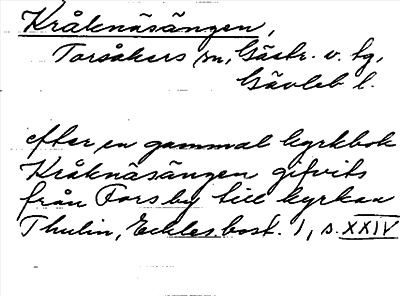 Kråknäsängen,
Torsåkers sn, Gästr. v. tg,
Gävleb l.
efter en gammal kyrkbok
Kråknäsängen gifvits
från Forsby till kyrkan
Thulin, Eckles. bost. 1, s. XXIV